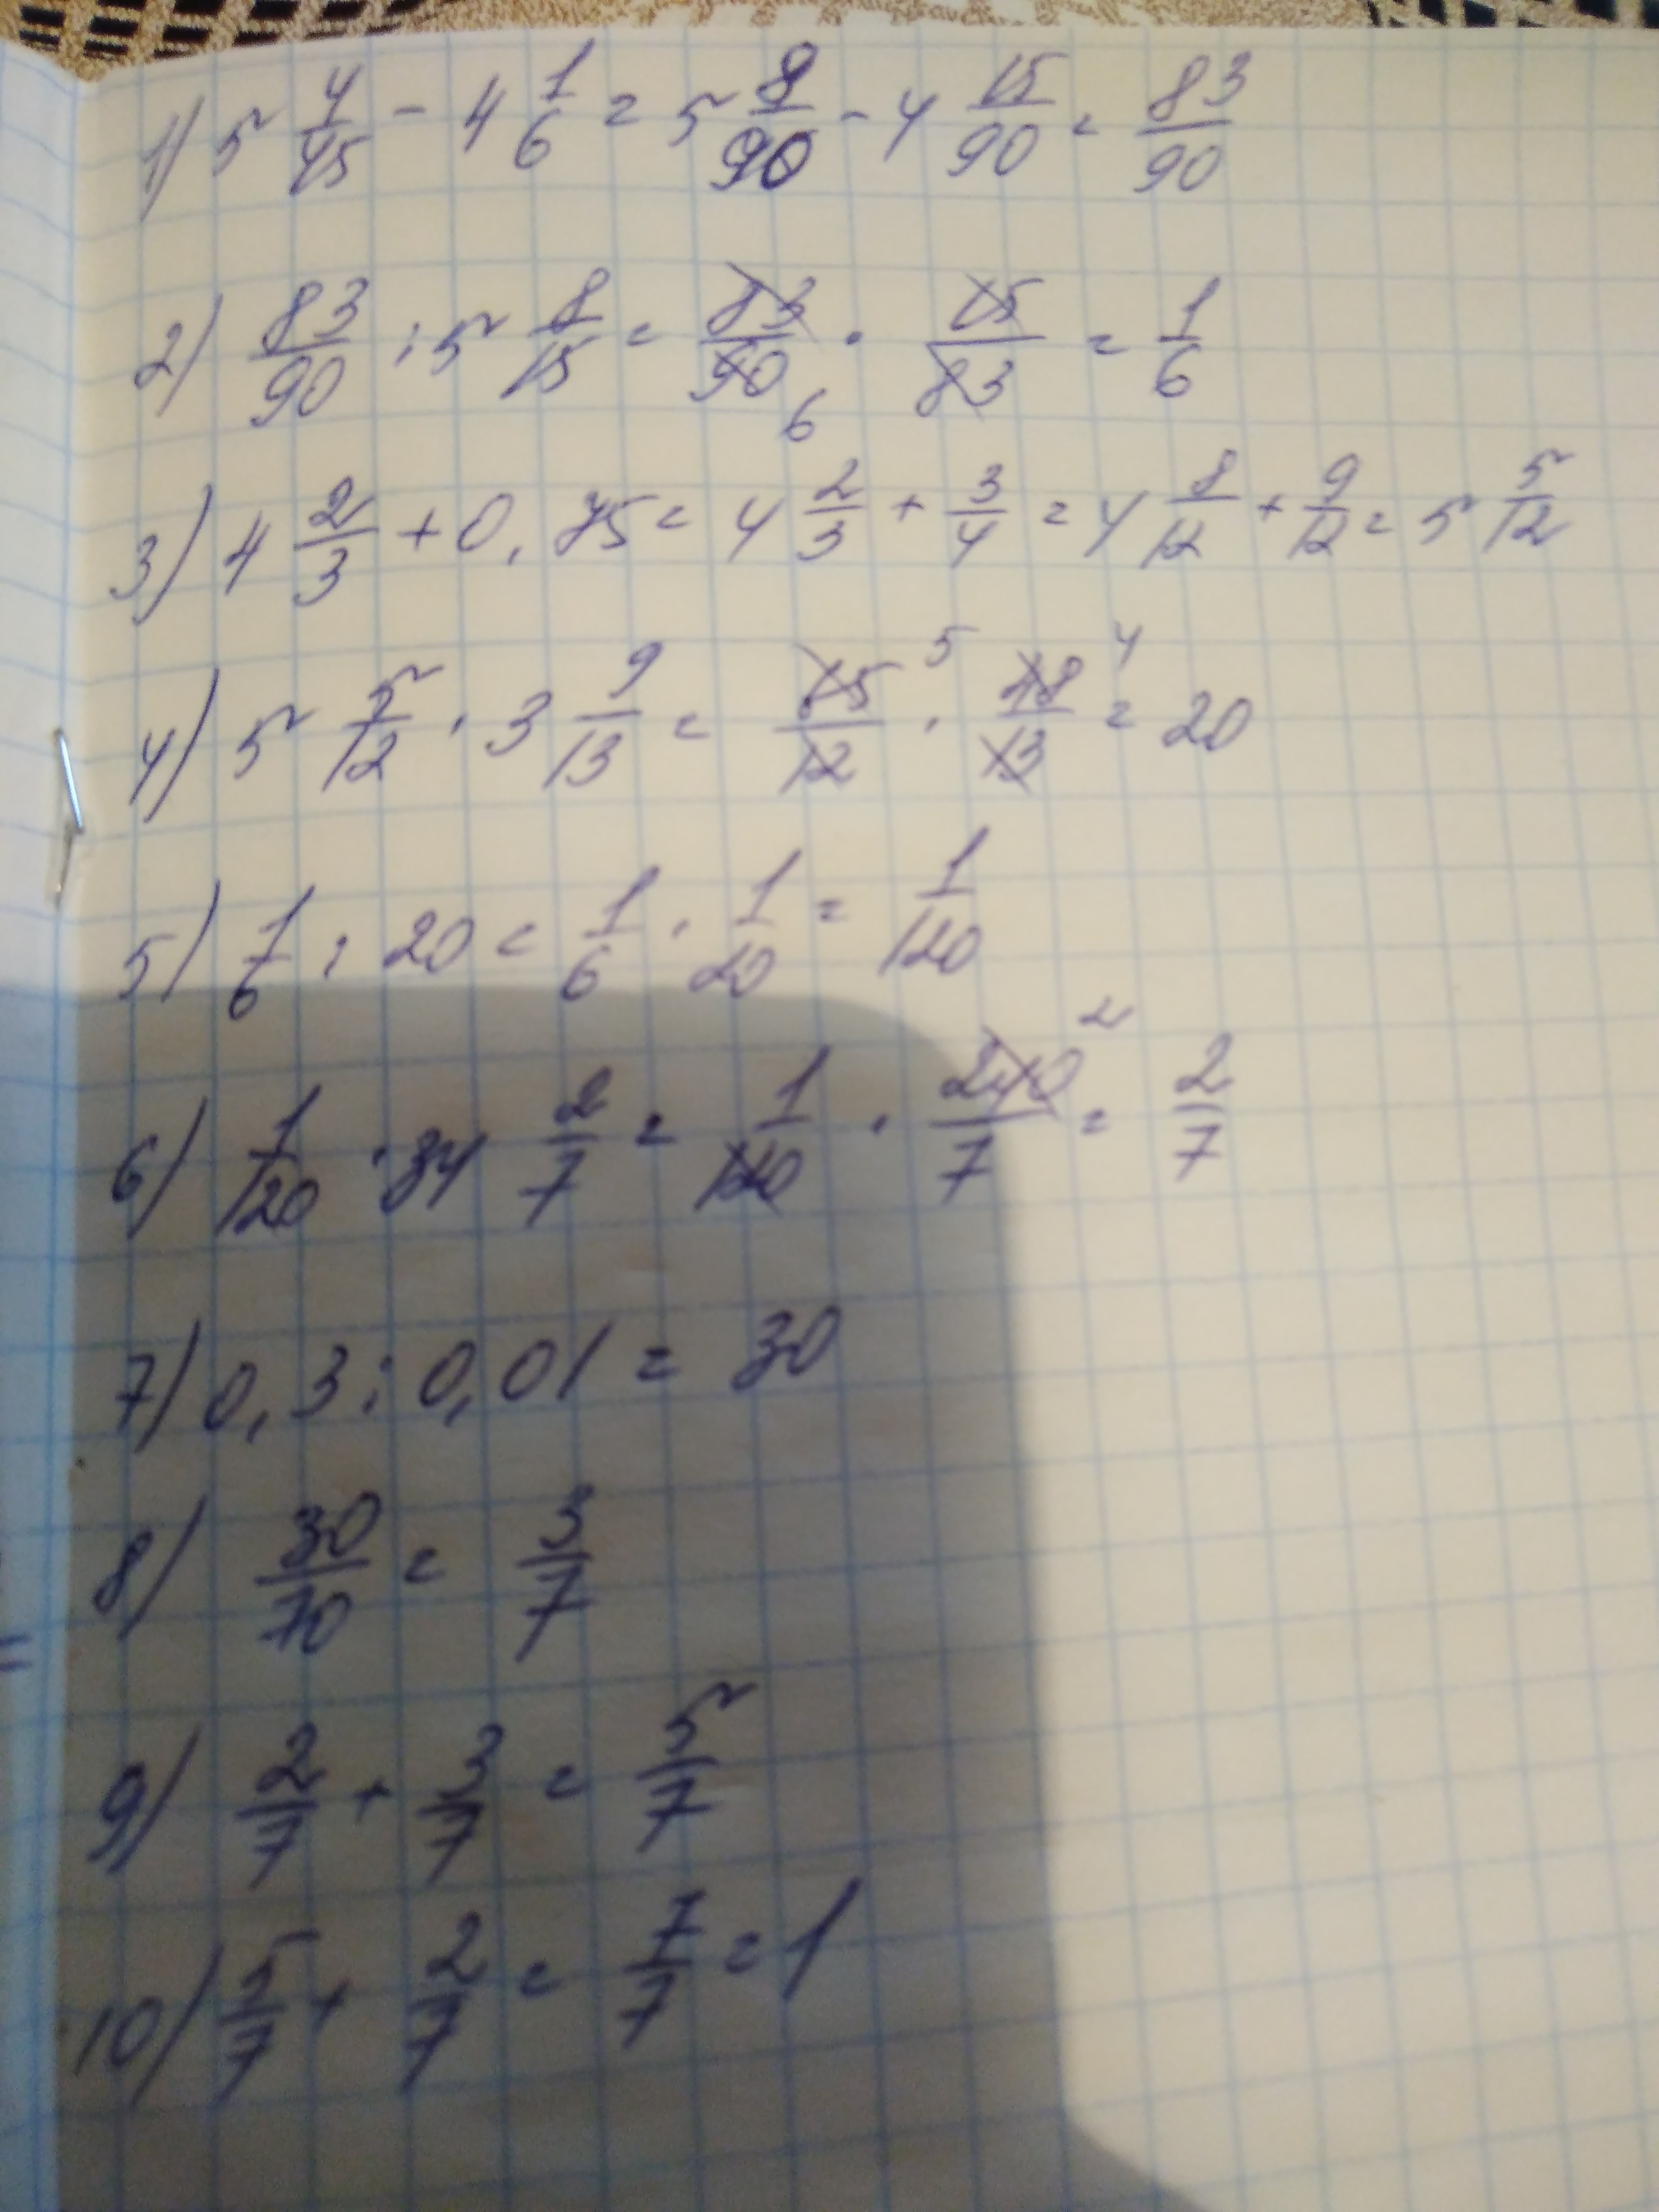 1) 5 4/45 - 4 1/6 = 5 8/90 - 4 15/90 = 83/90
2) 83/90 : 5 8/15 = 83/90 6 · 15/83 = 1/6
3) 4 2/3 + 0,75 = 4 2/3 + 3/4 = 4 8/12 + 9/12 = 5 5/12
4) 5 5/12 · 3 9/13 = 65/12 5 · 48/13 4 = 20
5) 1/6 : 20 = 1/6 · 1/20 = 1/120
6) 1/120 · 34 2/7 = 1/120 · 240/7 2 = 2/7
7) 0,3 : 0,01 = 30
8) 30/70 = 3/7
=
9) 2/7 + 3/7 = 5/7
10) 5/7 + 2/7 = 7/7 = 1